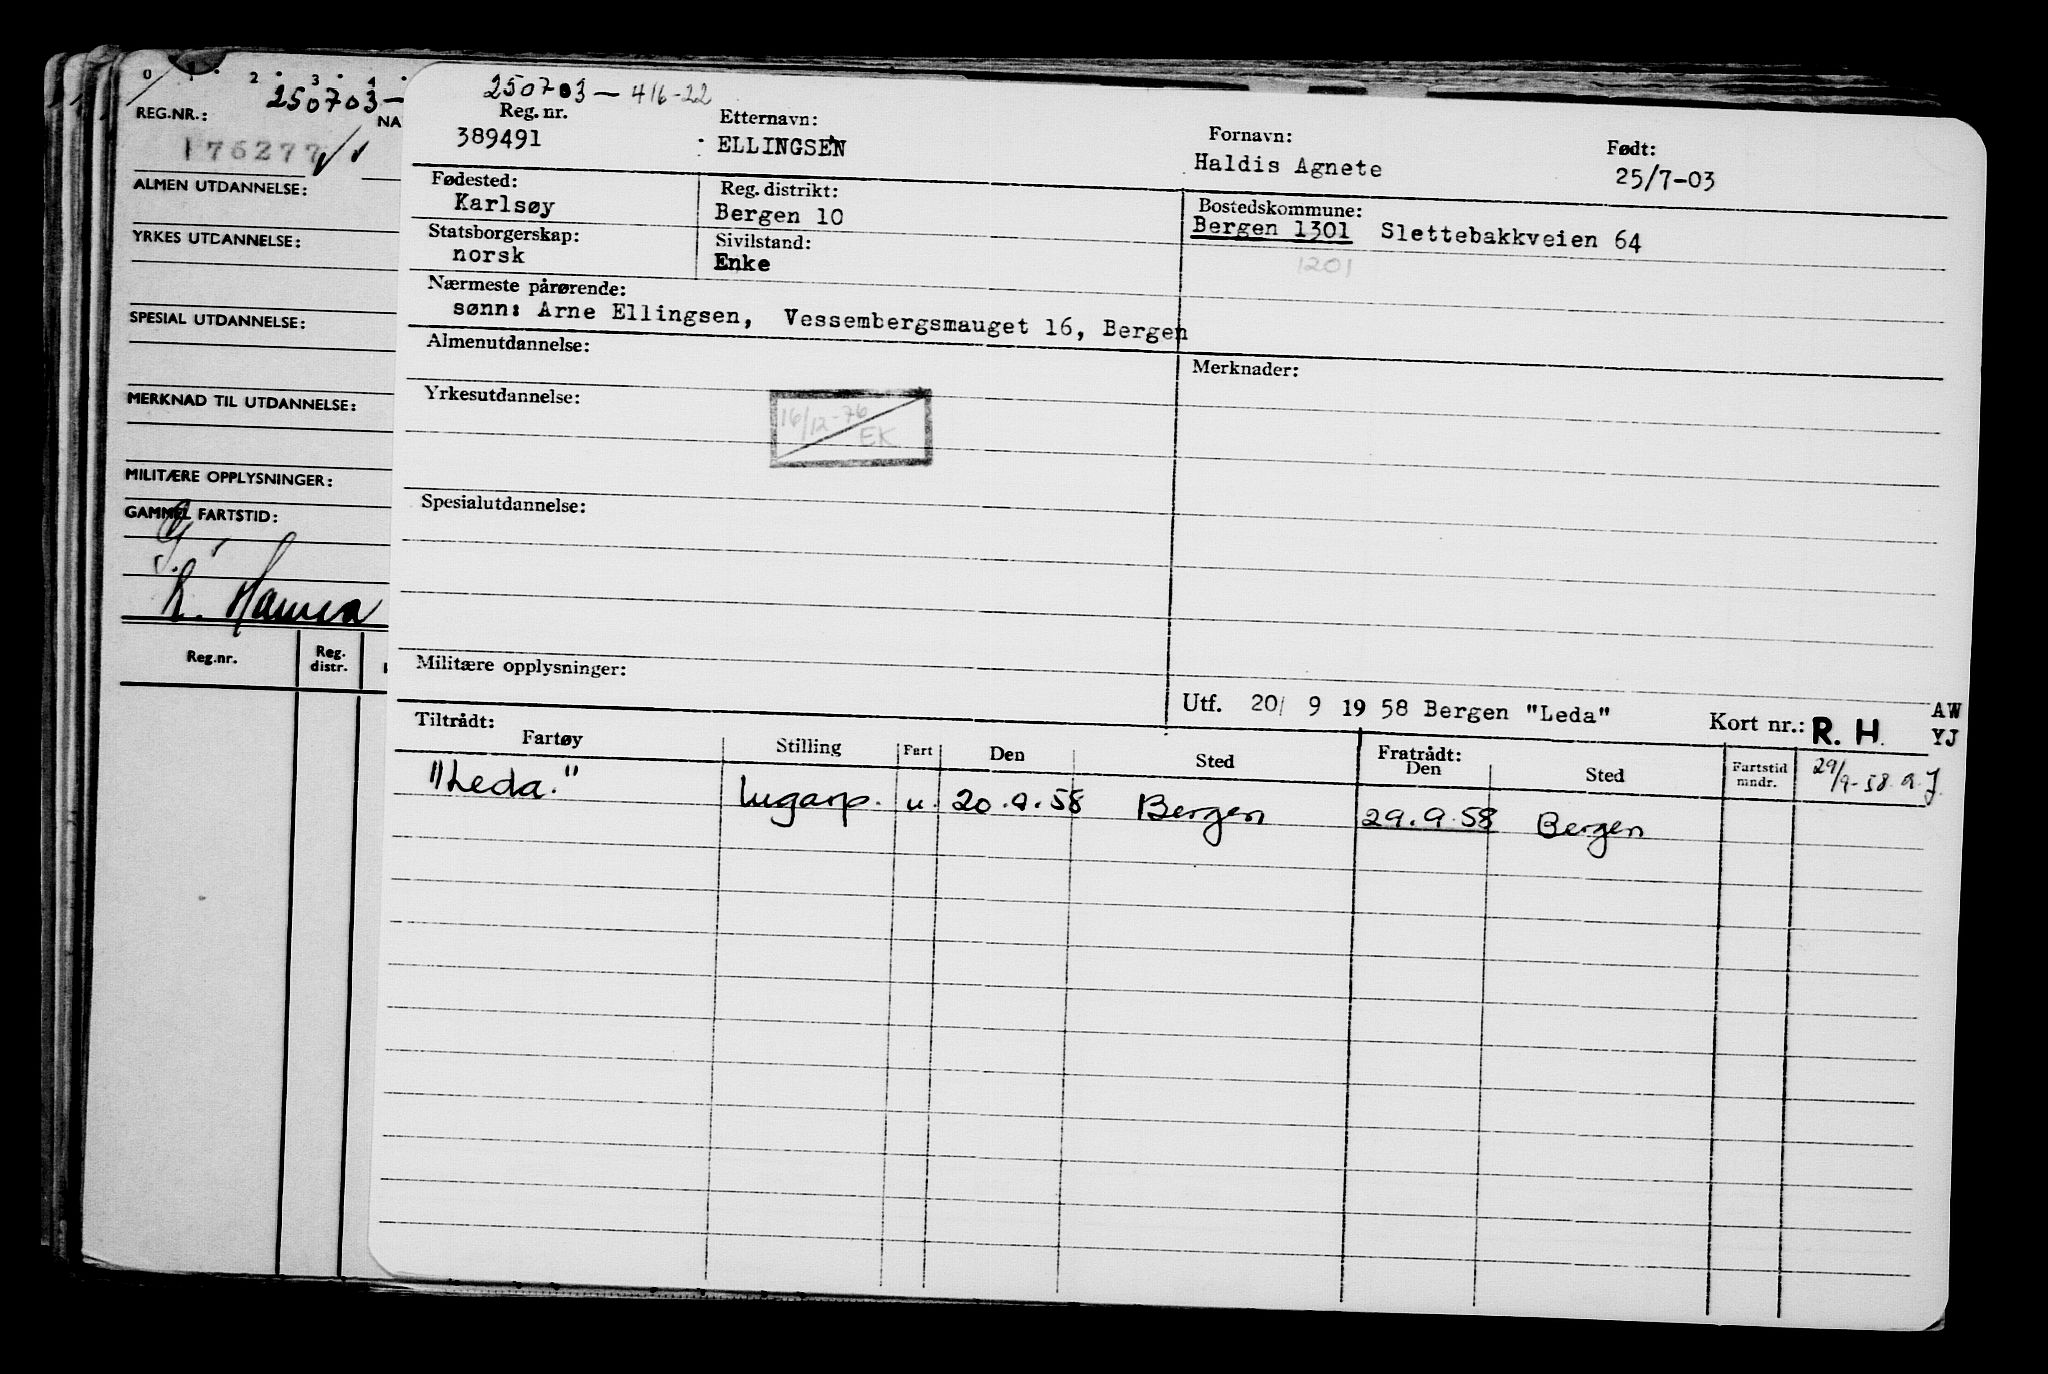 0 1 2 3 4
250703-
REG.NR.:
NA
176277
ALMEN UTDANNELSE:
YRKES UTDANNELSE:
SPESIAL UTDANNELSE:
MERKNAD TIL UTDANNELSE:
MILITÆRE OPPLYSNINGER:
GAMMEL FARTSTID:
Reg.nr. Reg. distr.
250703-416-22
Reg. nr. Etternavn: Fornavn: Født:
389491 ELLINGSEN Haldis Agnete 25/7-03
Fødested: Reg. distrikt: Bostedskommune:
Karlsøy Bergen 10 Bergen 1301 Slettebakkveien 64
Statsborgerskap: Sivilstand:
norsk Enke 1201
Nærmeste pårørende:
sønn: Arne Ellingsen, Vessembergsmauget 16, Bergen
Almenutdannelse: Merknader:
Yrkesutdannelse:
16/12-76
EK
Spesialutdannelse:
Militære opplysninger:
Utf. 20/ 9 19 58 Bergen "Leda" Kort nr.: R. H. AW
YJ
Tiltrådt: Fratrådt:
Fartøy Stilling Fart Den Sted Den Sted Fartstid mndr. 29/9-58 a.J.
"Leda." lugarp. u. 20.9.58 Bergen 29.9.58 Bergen